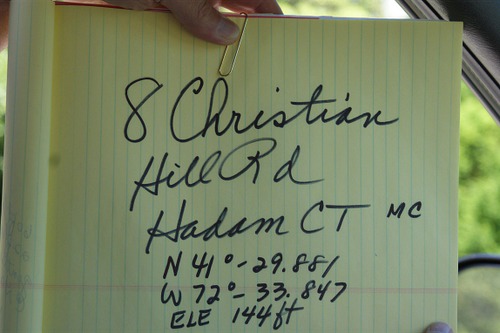 8 Christian
Hill Rd
Hadam CT MC
N 41° - 29.881
W 72° - 33.847
ELE 144ft